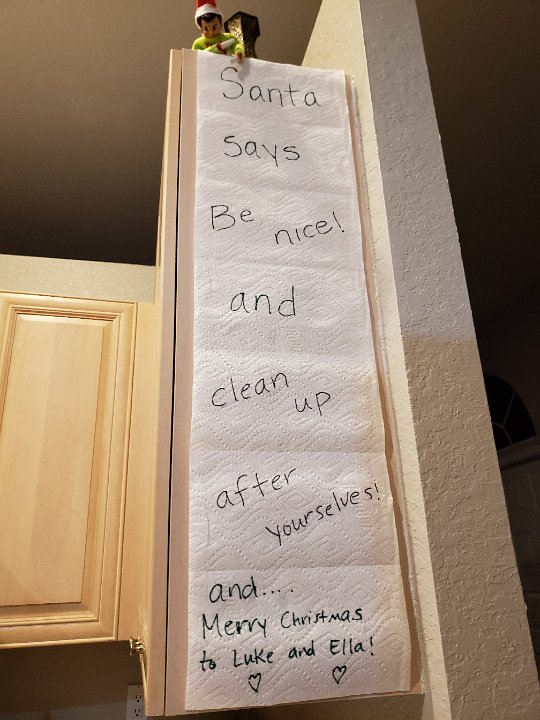 Santa
says
Be nice!
and
clean up
after
yourselves!
and....
Merry Christmas
to Luke and Ella!
♡ ♡